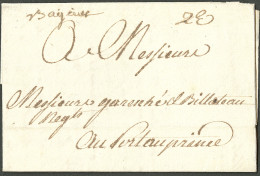 Bayonne 28
A Messieurs
Messieurs garesché & Billoteau
Negts
Au Portauprince